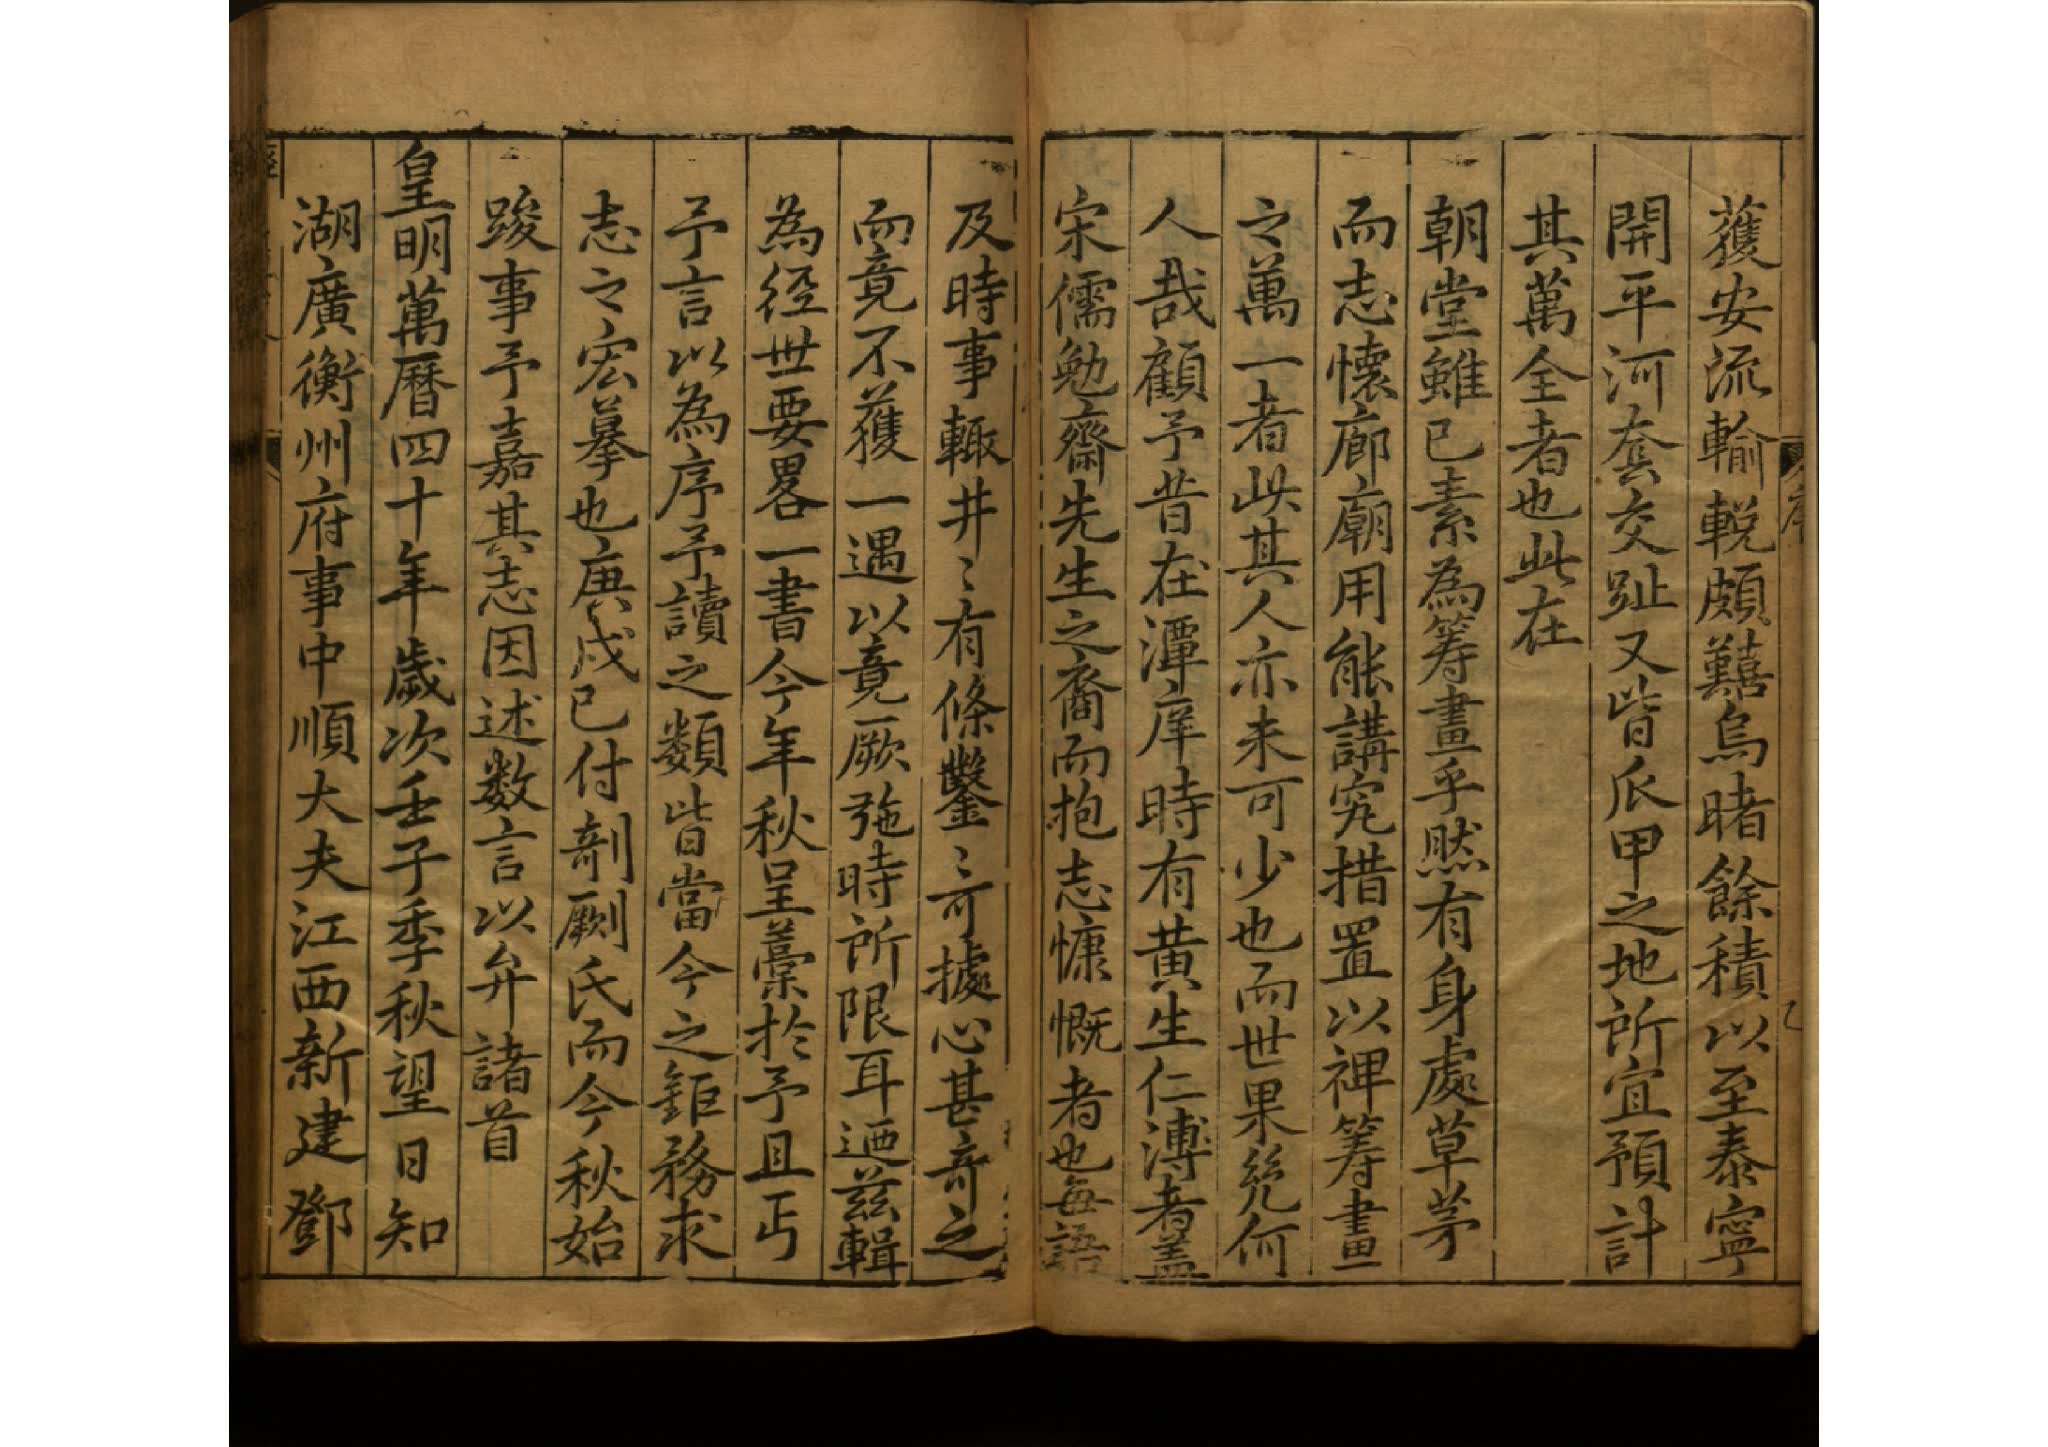 獲安流輸輓頗囏烏睹餘積以至泰寧
開平河套交趾又皆爪甲之地所宜預計
其萬全者也此在
朝堂雖已素為筹畫乎然有身處草茅
而志懷廊廟用能講究措置以裨筹畫
之萬一者此其人亦未可少也而世果幾何
人哉顧予昔在潭庠時有黃生仁溥者蓋
宋儒勉齋先生之裔而抱志慷慨者也每語
及時事輙井〻有條鑿〻可據心甚奇之
而竟不獲一遇以竟厥施時所限耳迺茲輯
為經世要畧一書今年秋呈藁於予且丐
予言以為序予讀之類皆當今之鉅務求
志之宏摹也庚戌已付剞劂氏而今秋始
踆事予嘉其志因述数言以弁諸首
皇明萬曆四十年歲次壬子季秋望日知
湖廣衡州府事中順大夫江西新建鄧